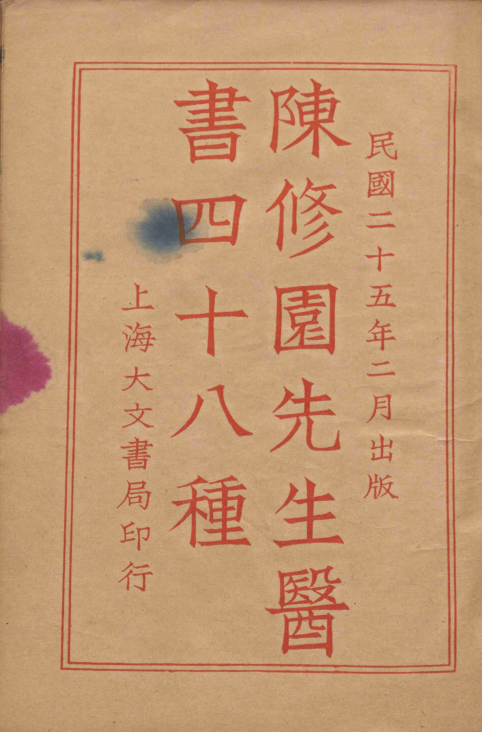 民國二十五年二月出版
陳修園先生醫
書四十八種
上海大文書局印行